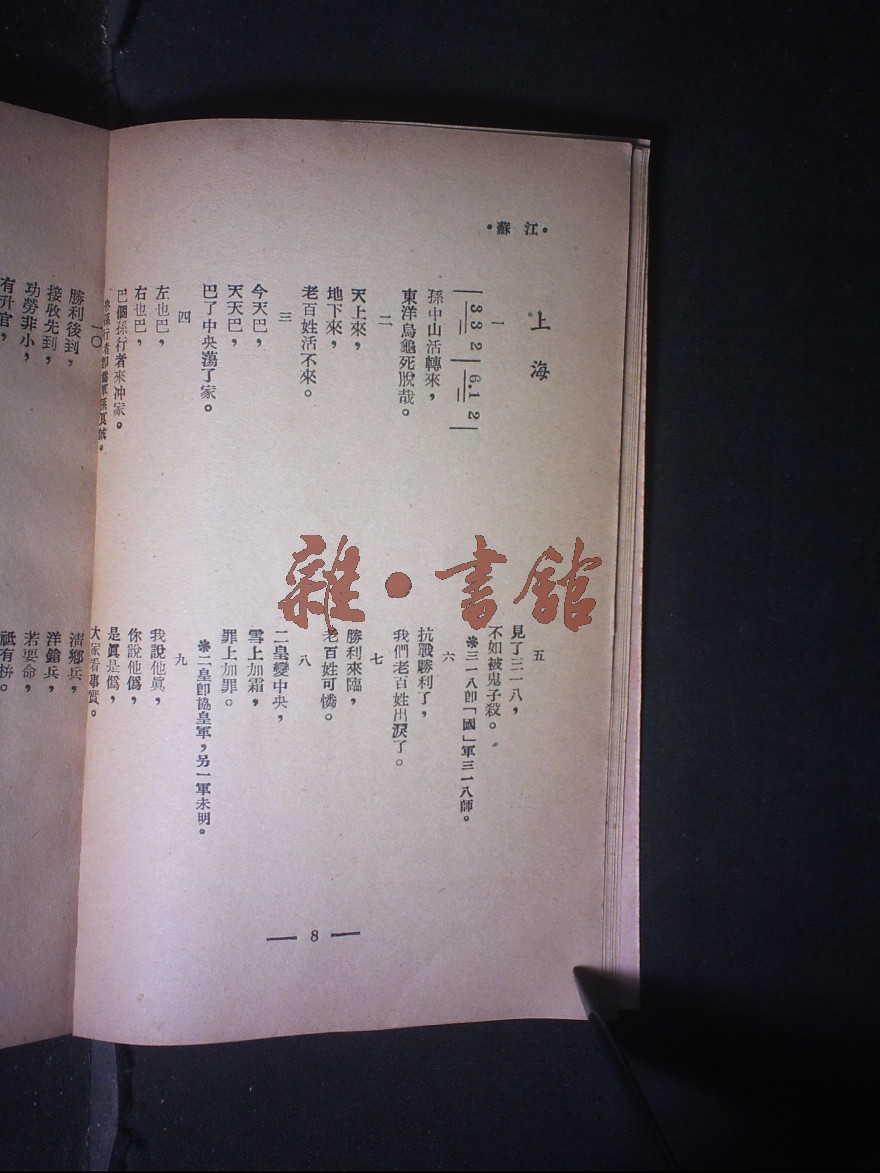 •江蘇•
上海
一
| 3 3 2 | 6. 1 2 |
孫中山活轉來，
東洋烏龜死脫哉。
二
天上來，
地下來，
老百姓活不來。
三
今天巴，
天天巴，
巴了中央蕩了家。
四
左也巴，
右也巴，
巴個孫行者來冲家。
五
見了三一八，
不如被鬼子殺。
※三一八卽「國」軍三一八師。
六
抗戰勝利了，
我們老百姓出淚了。
七
勝利來臨，
老百姓可憐。
八
二皇變中央，
雪上加霜，
罪上加罪。
※二皇卽協皇軍，另一軍未明。
九
我說他眞，
你說他僞，
是眞是僞，
大家看事實。
一〇
勝利後到，
接收先到，
功勞非小，
有升官，
淸鄉兵，
洋鎗兵，
若要命，
祗有拚。
— 8 —
雜·書館